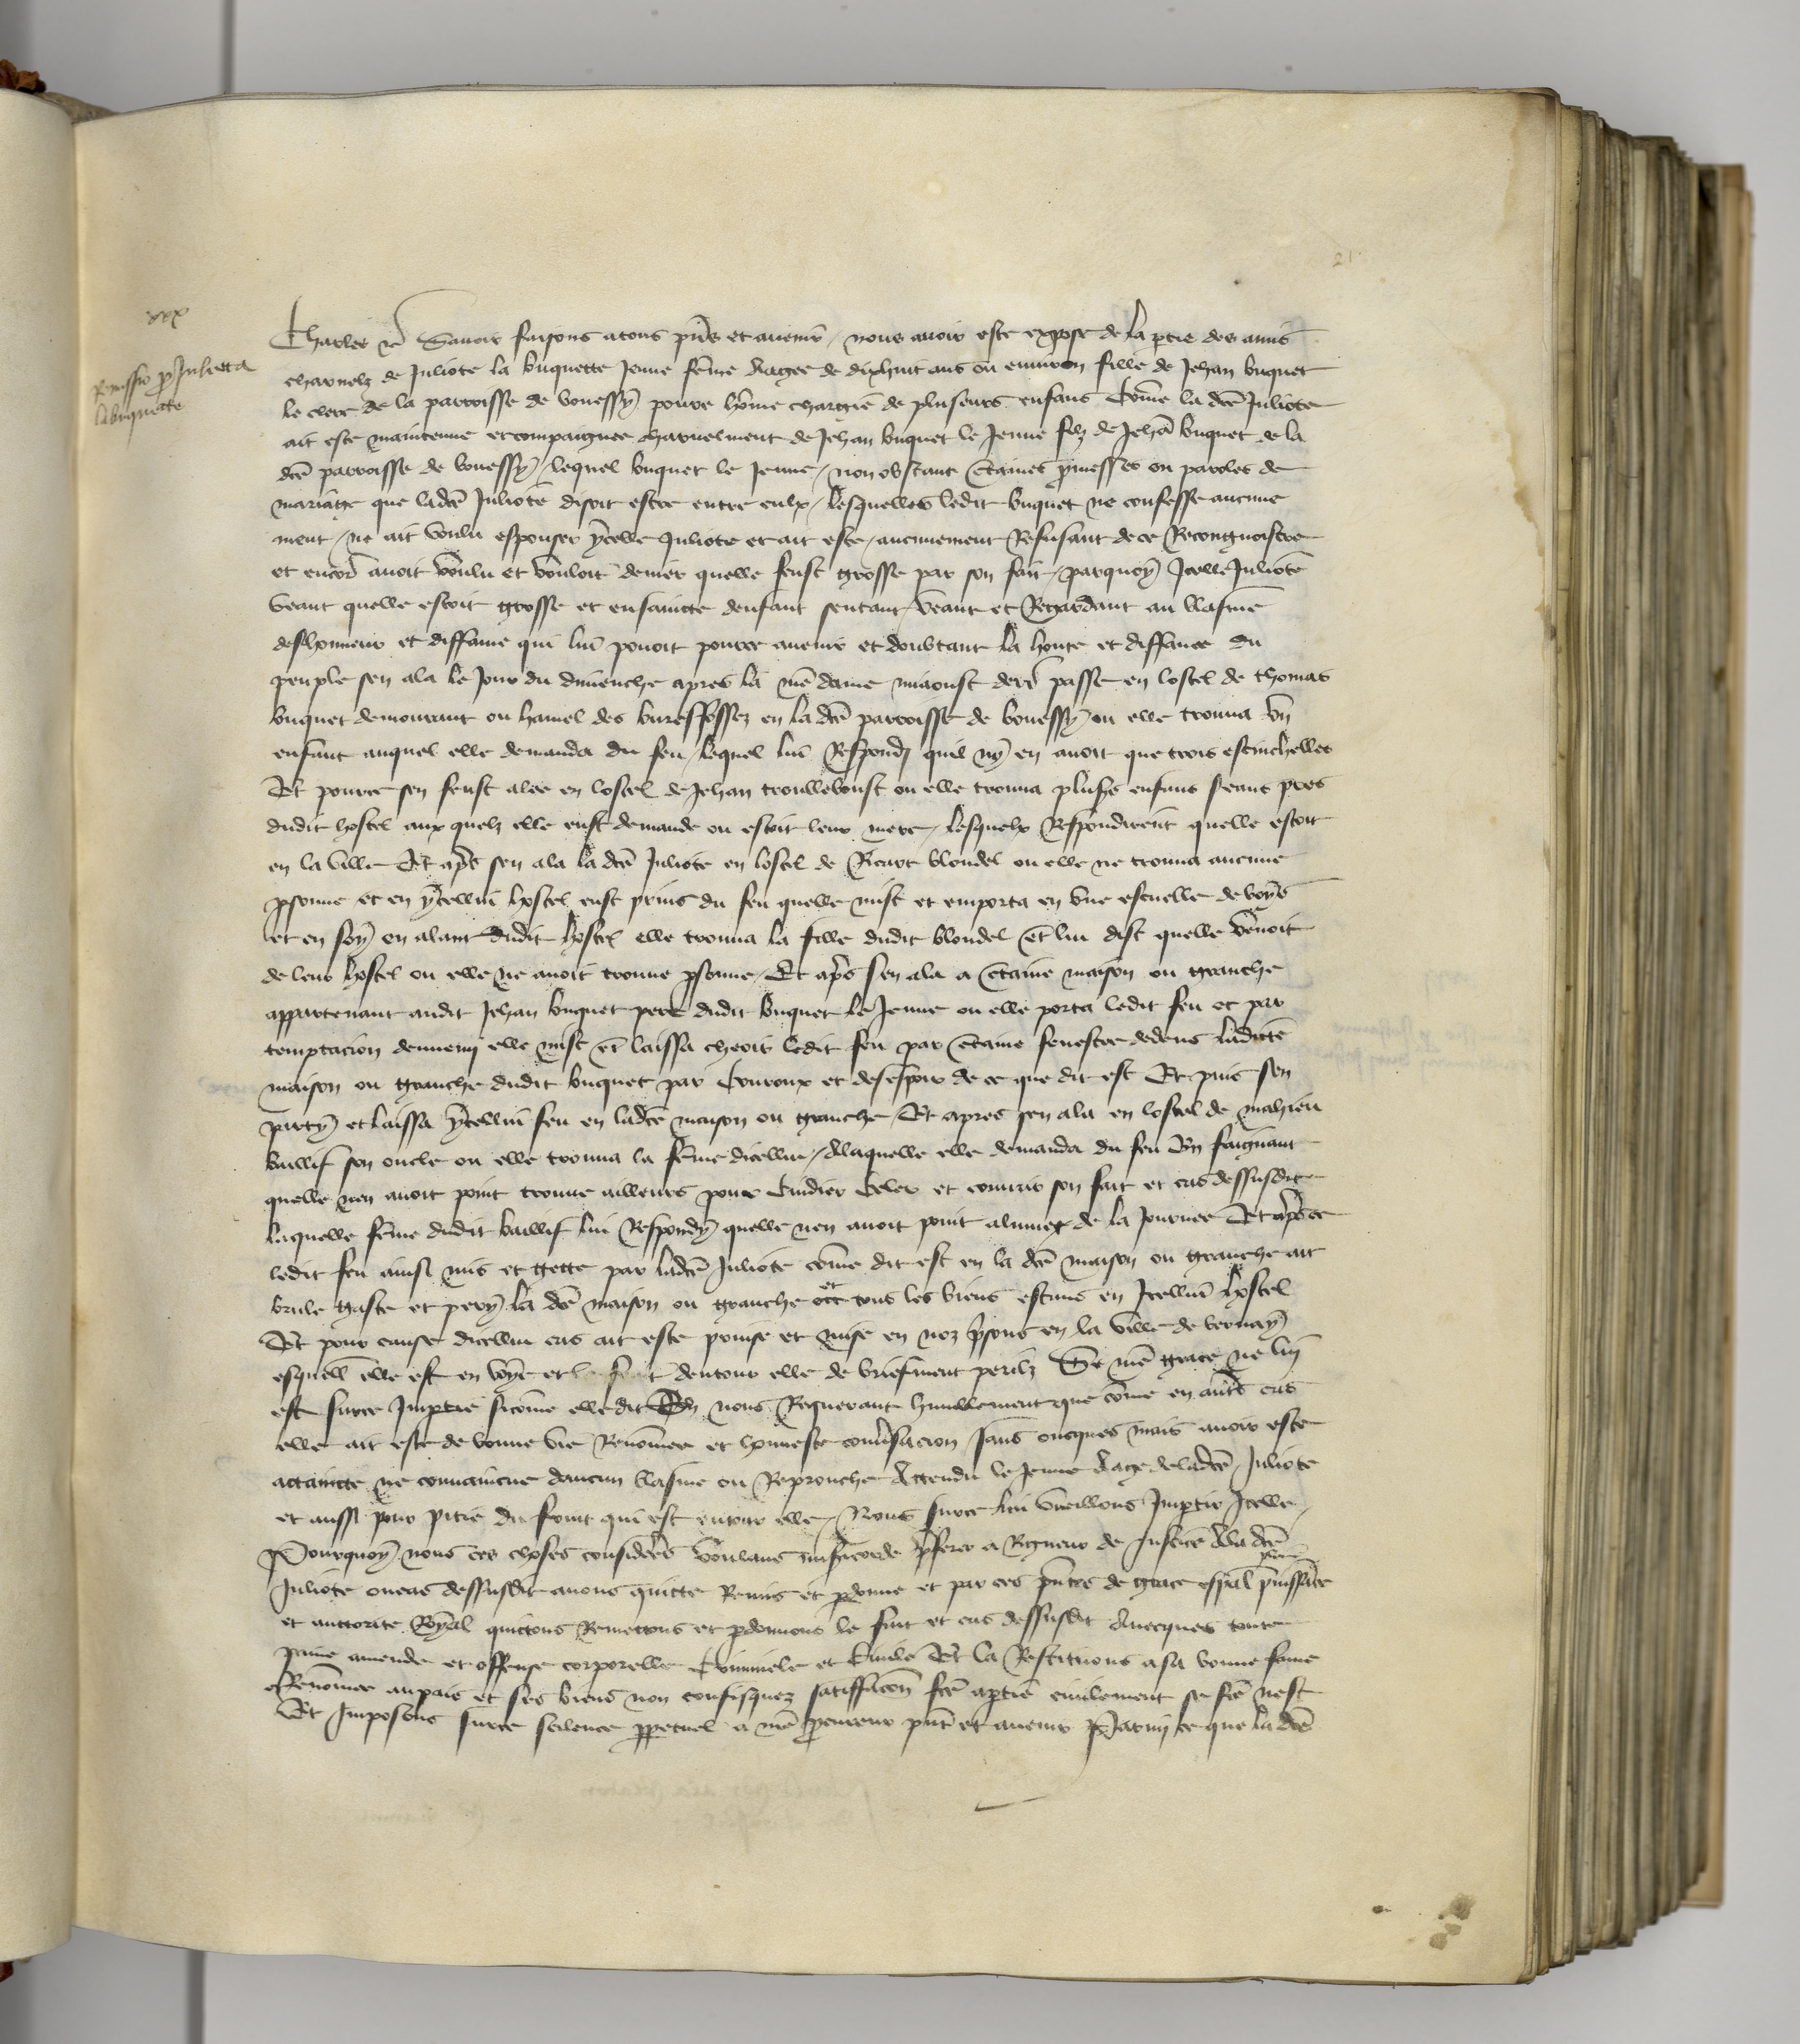 21
xxx
Remissio p Julieta
la buquette
Charles &c Savoir faisons a tous pns et avenir / nous avoir este expose de la ptie des amis
charnelz de Juliote la buquette jeune feme aagee de dixhuit ans ou environ fille de Jehan buquet
le clerc de la parroisse de bouessy povre home chargie de pluseurs enfans Come la dce Juliote
ait este maintenue et compaignee charnelment de Jehan buquet le jeune filz de Jehan buquet de la
dce parroisse de bouessy / lequel buquet le jeune / non obstant ctaines pmesses ou paroles de
mariage que ladce Juliote disoit estre entre eulx / lesquelles ledit buquet ne confesse aucune
ment / ne ait voulu espouser ycelle Juliote et ait este / aucunement Refusant de ce Recongnoistre
et encor avoit voulu et vouloit denier quelle feust grosse par son fait / parquoy Icelle Juliote
veant quelle estoit grosse et ensaincte denfant sentant / veant et Regardant au blasme
deshonneur et diffame qui lui povoit pource avenir et doubtant la honte et diffame du
peuple sen ala le jour du dimenche apres la nre dame miaoust derr passe en lostel de thomas
buquet demourant ou hamel des buressossez en la dce parroisse de bouessy / ou elle trouva un
enfant auquel elle demanda du feu / lequel lui Respondi quil ny en avoit que trois estinchelles
Et pource sen feust alee en lostel de Jehan troullevoust ou elle trouva plus's enfans seans pres
dudit hostel aux quelz elle eust demande ou estoit leur mere / lesquelx Respondirent quelle estoit
en la ville Et aps sen ala la dce Juliote en lostel de Ricart blondel ou elle ne trouva aucune
psonne et en ycellui hostel eust prins du feu quelle mist et emporta en une escuelle de boys
et en soy en alant dudit hostel elle trouva la fille dudit blondel et lui dist quelle venoit
de leur hostel ou elle ne avoit trouve psonne / Et aps sen ala a ctaine maison ou granche
appartenant audit Jehan buquet pere dudit buquet le Jeune ou elle porta ledit feu et par
temptacion dennemi elle mist et laissa cheoir ledit feu par ctaine fenestre dedens ladicte
maison ou granche dudit buquet par Couroux et desespoir de ce que dit est Et puis sen
party et laissa ycellui feu en ladce maison ou granche / Et apres sen ala en lostel de mahieu
baillif son oncle ou elle trouva la feme dicellui / Alaquelle elle demanda du feu En faignant
quelle nen avoit point trouve ailleurs pour Cuidier Celer et couvrir son fait et cas dessusdit
laquelle feme dudit baillif lui Respondy quelle nen avoit point alume de la journee Et aps ce
ledit feu ainsi mis et gette par ladce Juliote come dit est en la dce maison ou granche ait
brule gaste et pery la dce maison ou granche et tous les biens estans en Icellui hostel
Et pour cause dicellui cas ait este prinse et mise en noz psons en la ville de vernay
esquell elle est en voye et le fruit dentour elle de briefment perilz Se nre grace ne lui
est surce Imptie sicome elle dit En nous Requerant humblement que come en autres cas
elle ait este de bonne vie Renomee et honneste convsacion sans oncques mais avoir este
actainte ne convaincue daucun blasme ou Reprouche Attendu le jeune aage de ladce Juliote
et aussi pour pitie du fruit qui est entour elle / Nous surce lui vueillons Imptir Icelle /
Pourquoy nous ces choses considerees voulans misericorde pferer a Rigueur de Justice A la dce
Juliote ou cas dessusdit avons quicte Remis et pdonne et par ces pntes de grace espal plaine puissance
et auctorite Royal quictons Remettons et pdonnons le fait et cas dessusdit Avecques toute
paine amende et offense corporelle Criminele et Civile Et la Restituons a sa bonne fame
Renomee au pais et ses biens non confisquez satiffacon fce a ptie civilement se fce nest
Et Imposons surce scilence ppetuel a nre pcureur pnt et avenir Parmi ce que la dce